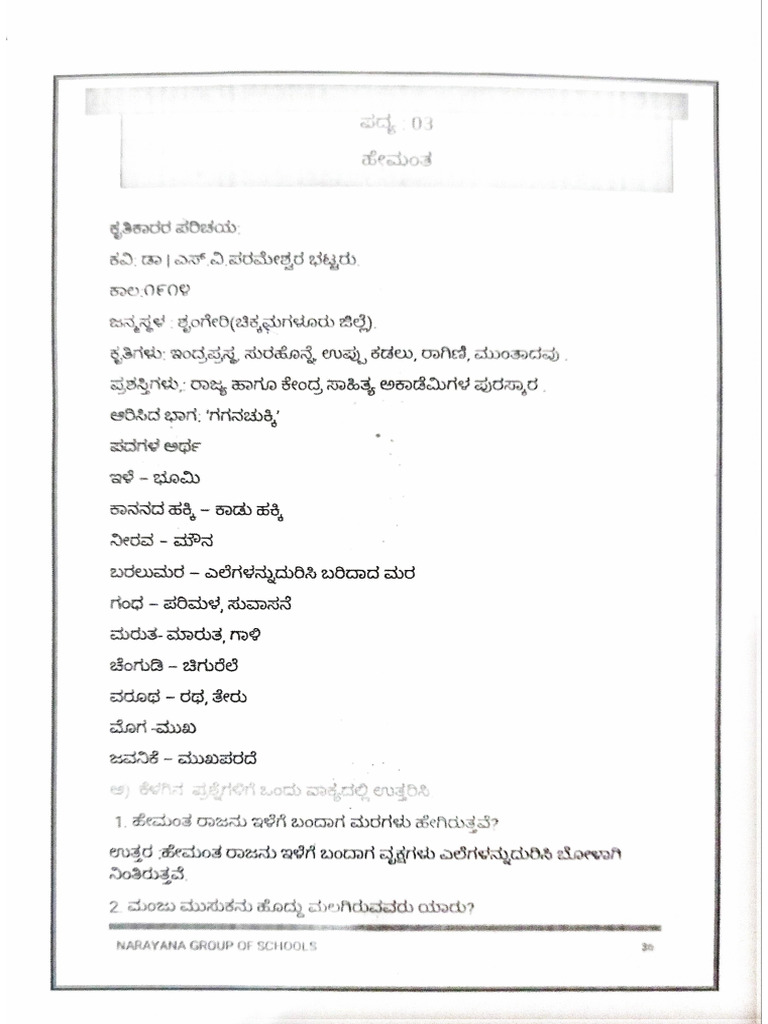 ಪದ್ಯ : 03
ಹೇಮಂತ
ಕೃತಿಕಾರರ ಪರಿಚಯ:
ಕವಿ: ಡಾ | ಎಸ್.ವಿ.ಪರಮೇಶ್ವರ ಭಟ್ಟರು.
ಕಾಲ:೧೯೧೪
ಜನ್ಮಸ್ಥಳ : ಶೃಂಗೇರಿ(ಚಿಕ್ಕಮಗಳೂರು ಜಿಲ್ಲೆ).
ಕೃತಿಗಳು: ಇಂದ್ರಪ್ರಸ್ಥ, ಸುರಹೊನ್ನೆ, ಉಪ್ಪು ಕಡಲು, ರಾಗಿಣಿ, ಮುಂತಾದವು .
ಪ್ರಶಸ್ತಿಗಳು,: ರಾಜ್ಯ ಹಾಗೂ ಕೇಂದ್ರ ಸಾಹಿತ್ಯ ಅಕಾಡೆಮಿಗಳ ಪುರಸ್ಕಾರ .
ಆರಿಸಿದ ಭಾಗ: ‘ಗಗನಚುಕ್ಕಿ’
ಪದಗಳ ಅರ್ಥ
ಇಳೆ – ಭೂಮಿ
ಕಾನನದ ಹಕ್ಕಿ – ಕಾಡು ಹಕ್ಕಿ
ನೀರವ – ಮೌನ
ಬರಲುಮರ – ಎಲೆಗಳನ್ನುದುರಿಸಿ ಬರಿದಾದ ಮರ
ಗಂಧ – ಪರಿಮಳ, ಸುವಾಸನೆ
ಮರುತ- ಮಾರುತ, ಗಾಳಿ
ಚೆಂಗುಡಿ – ಚಿಗುರೆಲೆ
ವರೂಥ – ರಥ, ತೇರು
ಮೊಗ -ಮುಖ
ಜವನಿಕೆ – ಮುಖಪರದೆ
ಅ) ಕೆಳಗಿನ ಪ್ರಶ್ನೆಗಳಿಗೆ ಒಂದು ವಾಕ್ಯದಲ್ಲಿ ಉತ್ತರಿಸಿ
1. ಹೇಮಂತ ರಾಜನು ಇಳೆಗೆ ಬಂದಾಗ ಮರಗಳು ಹೇಗಿರುತ್ತವೆ?
ಉತ್ತರ :ಹೇಮಂತ ರಾಜನು ಇಳೆಗೆ ಬಂದಾಗ ವೃಕ್ಷಗಳು ಎಲೆಗಳನ್ನುದುರಿಸಿ ಬೋಳಾಗಿ
ನಿಂತಿರುತ್ತವೆ.
2. ಮಂಜು ಮುಸುಕನು ಹೊದ್ದು ಮಲಗಿರುವವರು ಯಾರು?
NARAYANA GROUP OF SCHOOLS